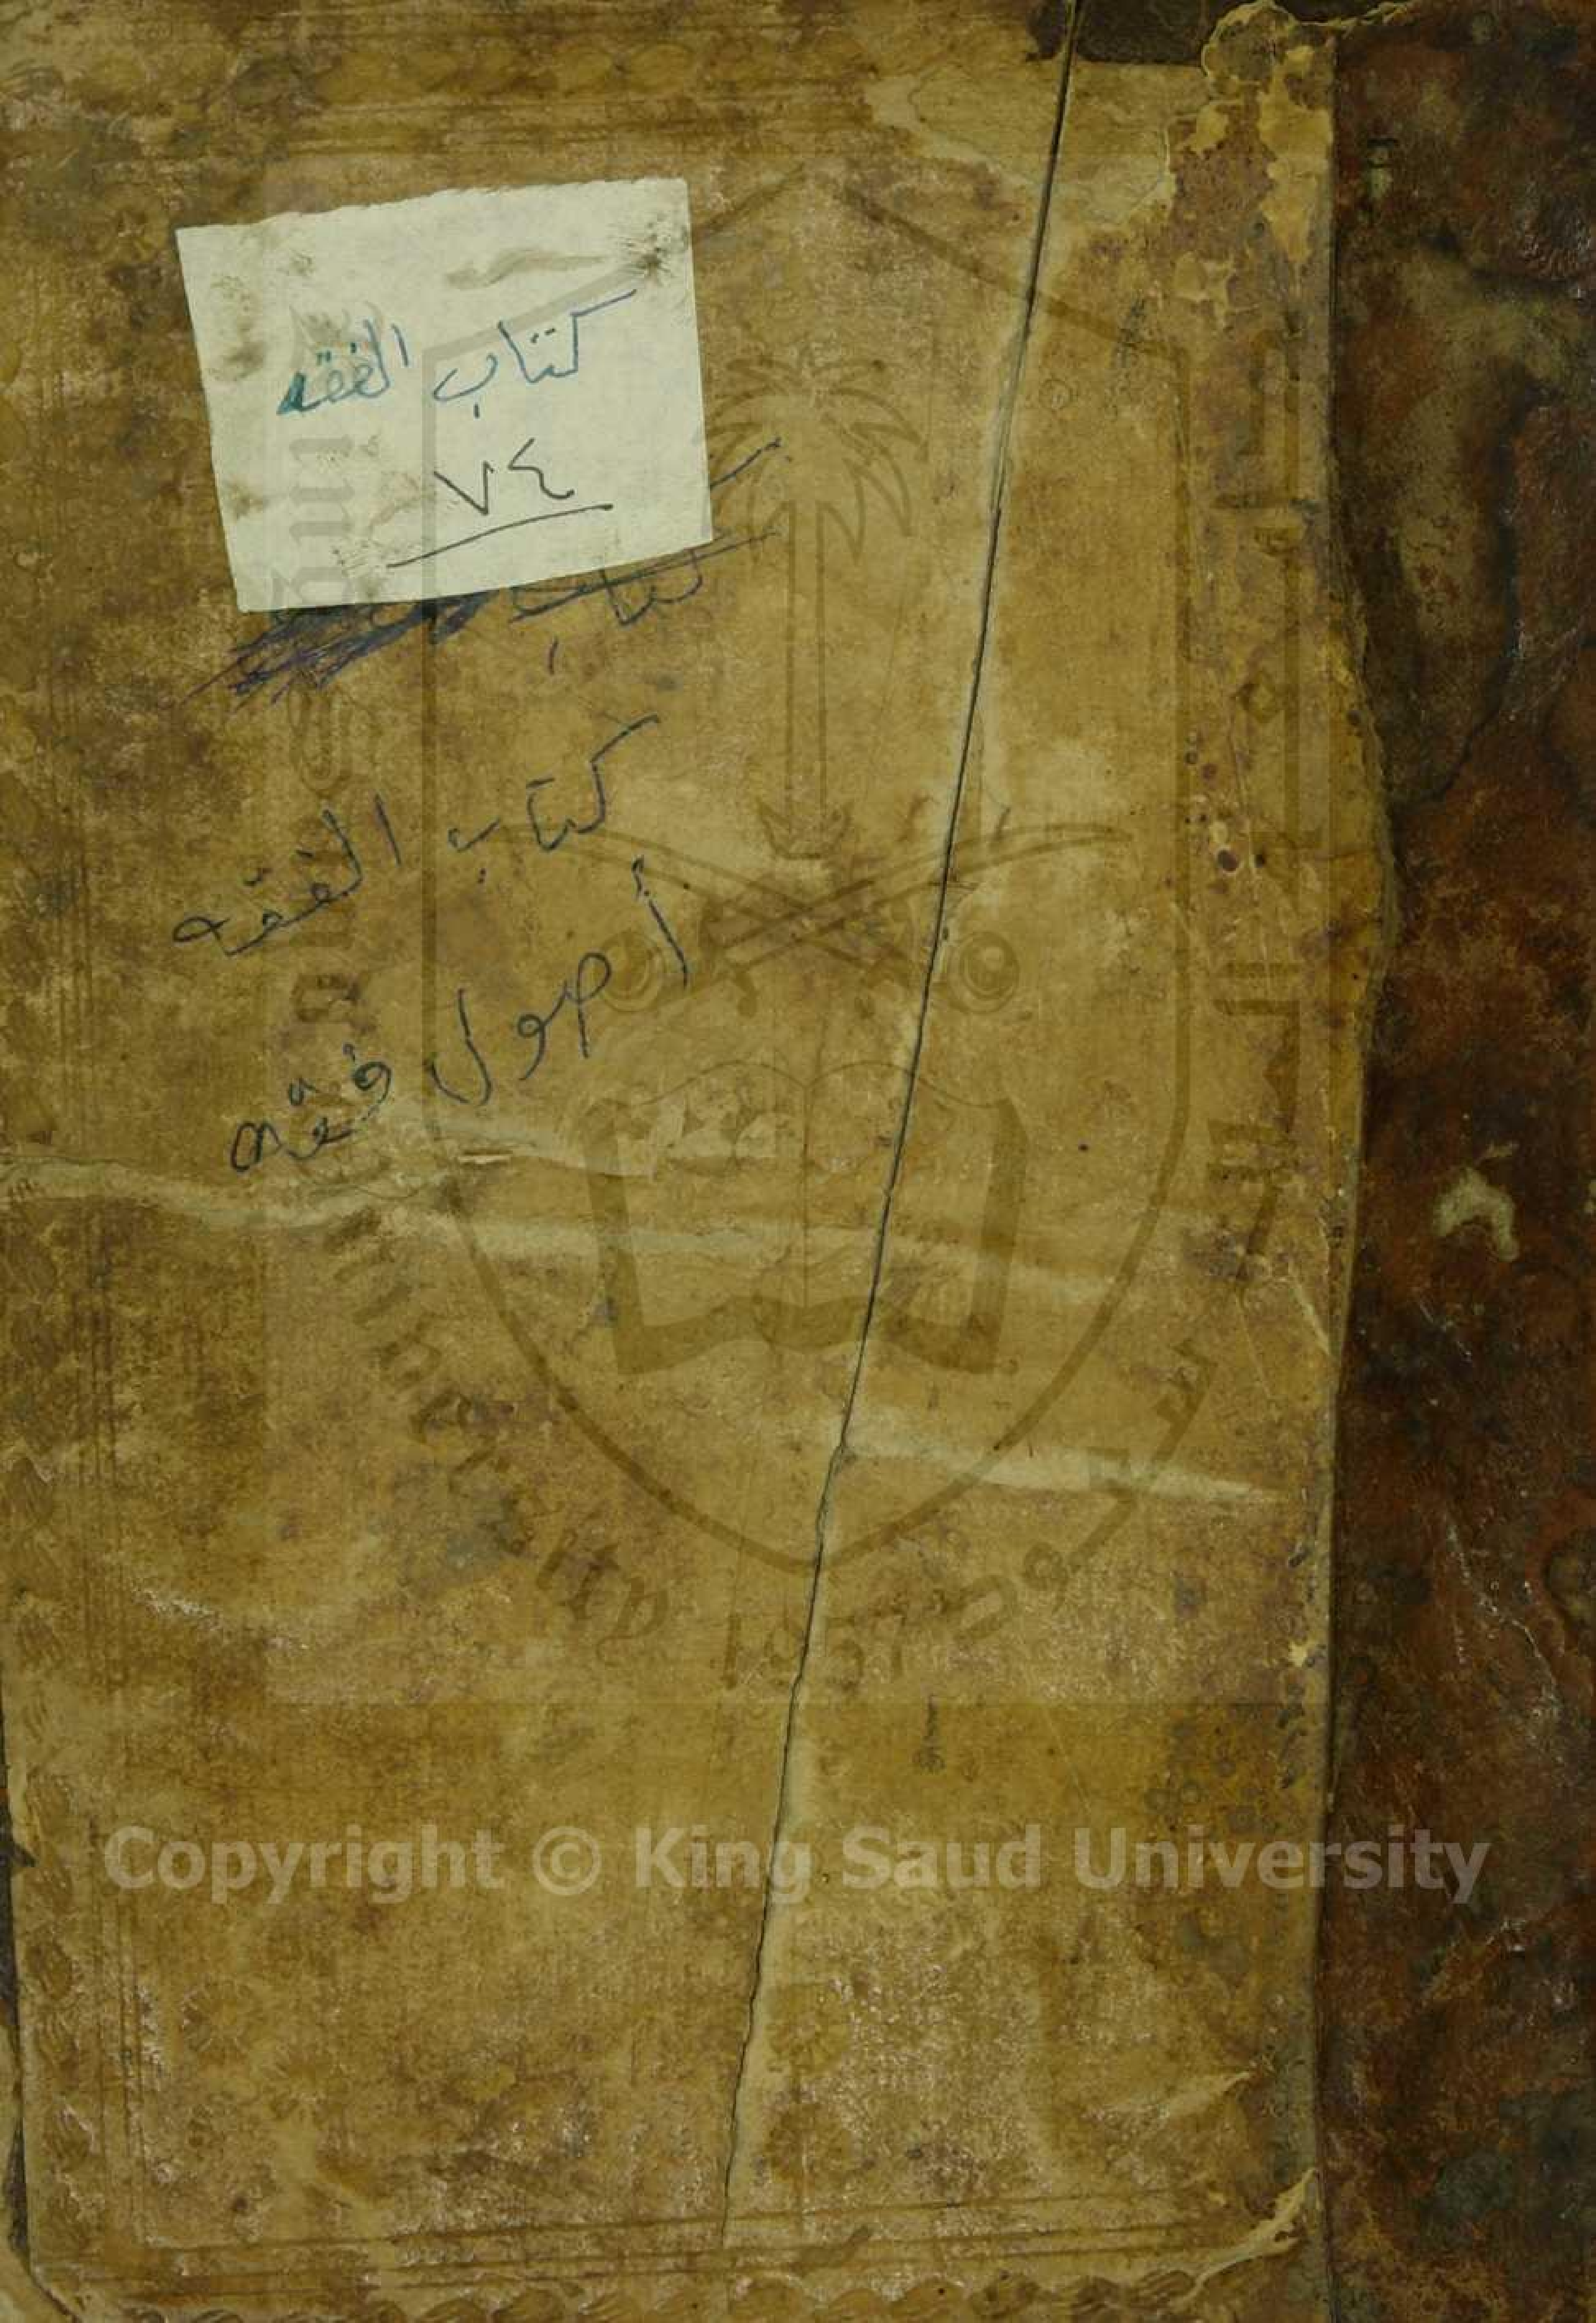 كتاب الفقه
٧٤
كتاب
كتاب الفقه
أصول فقه
1957
Copyright © King Saud University